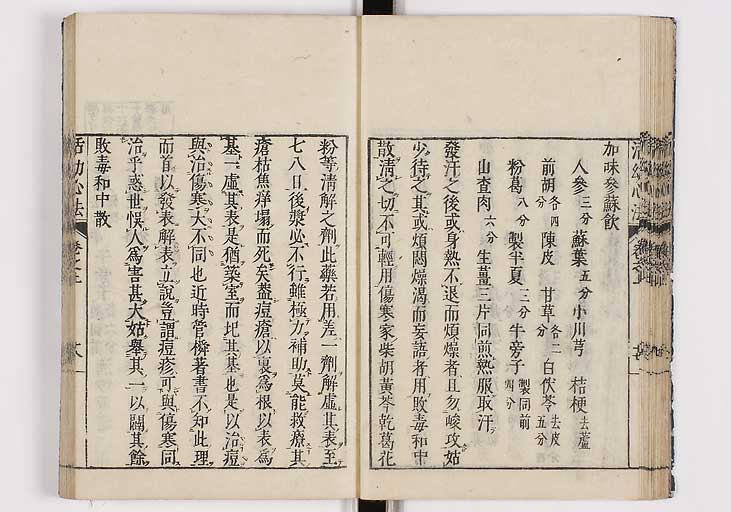 加味參蘇飲
人參三分 蘇葉五分 小川芎 桔梗去蘆
前胡各四分 陳皮 甘草各二分 白茯苓去皮五分
粉葛八分 製半夏三分 牛旁子製同前四分
山查肉六分 生薑三片同煎熱服取汗
發汗之後或身熱不退而煩燥者且勿峻攻姑
少待之其或煩悶燥渴而妄語者用敗毒和中
散淸之切不可輕用傷寒家柴胡黃芩乾葛花
粉等淸解之劑此藥若用差一劑解虛其表至
七八日後漿必不行雖極力補助莫能救療其
瘡枯焦痒塌而死矣蓋痘瘡以裏爲根以表爲
基一虛其表是猶築室而圮其基也是以治痘
與治傷寒大不同也近時管橓著書不知此理
而首以發表解表立說豈謂痘疹可與傷寒同
治乎惑世悞人爲害甚大姑舉其一以闢其餘
敗毒和中散
活幼心法